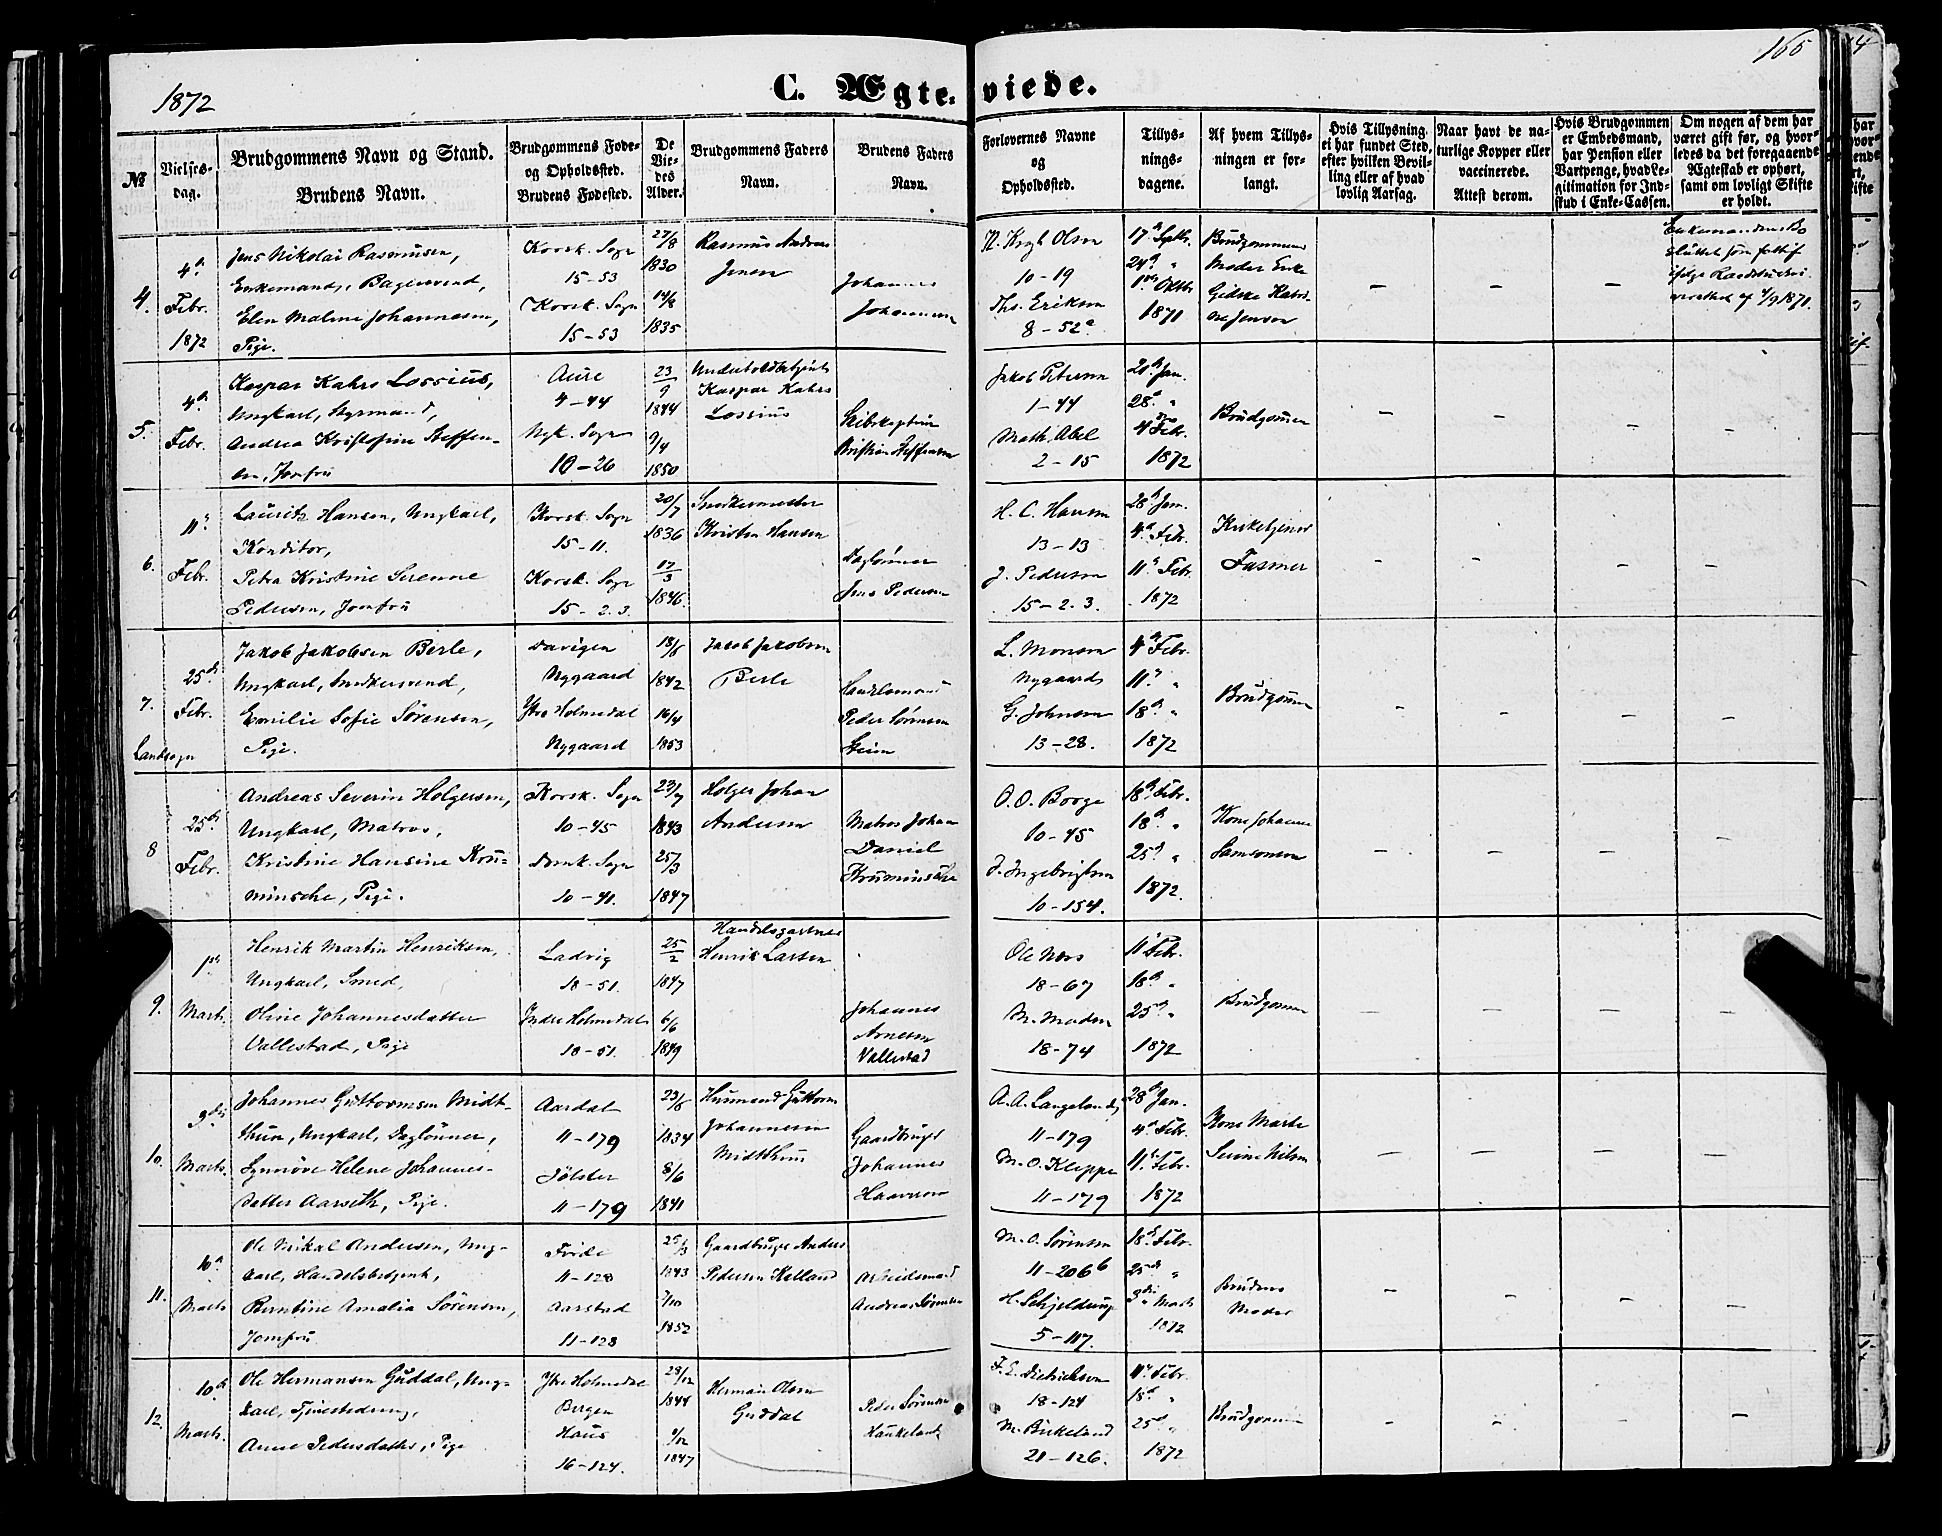 1872
C. Ægteviede.
165
№
Vielsesdag.
Brudgommens Navn og Stand.
Brudens Navn.
Brudgommens Føde- og Opholdssted.
Brudens Fødested.
De Viedes Alder.
Brudgommens Faders Navn.
Brudens Faders Navn.
Forlovernes Navne og Opholdssted.
Tillysningsdagene.
Af hvem Tillysningen er forlangt.
Hvis Tillysning ei har fundet Sted, efter hvilken Bevilling eller af hvad lovlig Aarsag.
Naar havt de naturlige Kopper eller vaccinerede.
Attest derom.
Hvis Brudgommen er Embedsmand, har Pension eller Vartpenge, hvad Legitimation for Indskud i Enke-Cassen.
Om nogen af dem har været gift før, og hvorledes da det foregaaende Ægteskab er ophørt, samt om lovligt Skifte er holdt.
4.
4d Febr. 1872
Jens Nikolai Rasmussen,
Enkemand, Bagersvend,
Elen Maline Johannesen,
Pige.
Korsk. Sogn
15-53
Korsk. Sogn
15-53
27/8 1830
14/8 1835
Rasmus Andreas
Jensen
Johannes
Johannesen
N. Krogh Olsen
10-19
Ths. Eriksen
8-52a
17d Septbr.
24d "
1ste Oktbr
1871
Brudgommens
Moder Enke
Gidske Katrine Jensen
5.
4d Febr.
Kaspar Kahrs Lossius,
Ungkarl, Styrmand,
Andrea Kristofine Steffensen, Jomfru
Aure
4-44
Nyk. Sogn
10-26
23/9 1844
9/4 1850
Underboldsbetjent
Kaspar Kahrs
Lossius
Skibskaptein
Kristian Steffensen
Jakob Petersen
1-44
Math. Abel
2-15
20d Jan.
28d "
4de Febr.
1872
Brudgommen
6.
11t Febr.
Lauritz Hansen, Ungkarl,
Konditor,
Petra Kristine Serenne
Pedersen, Jomfru
Korsk. Sogn
15-11.
Korsk. Sogn
15-2.3.
20/7 1836
17/3 1846.
Snedkermester
Kristen Hansen
Daglønner
Jens Pedersen
H. C. Hansen
13-13
J. Pedersen
15-2.3.
28d Jan.
4d Febr.
11t Febr.
1872
Kirketjener
Fasmer
7.
Landsogn
25de Febr.
Jakob Jakobsen Berle,
Ungkarl, Snedkersvend,
Emilie Sofie Sørensen,
Pige.
Davigen
Nygaard
Ytre Holmedal
Nygaard
1842
16/4 1853
Jacob Jakobsen
Berle
Handelsmand
Peder Sørensen
L. Monsen
Nygaards
G. Johnsen
13-28.
4d Febr.
11t "
18d "
1872
Brudgommen
8
25de Febr.
Andreas Severin Holgersen,
Ungkarl, Matros,
Kristine Hansine Krumminsche, Pige.
Korsk. Sogn
10-45
Domk. Sogn
10-41.
23/7 1843
25/3 1847
Holger Johan
Andersen
Matros Johan
Daniel
Krumminsche
O. O. Borge
10-45
J. Ingebrigtsen
10-154.
18d Febr.
18d "
25d "
1872.
Kone Johanne
Samsonsen
9.
1ste Marts.
Henrik Martin Henriksen,
Ungkarl, Smed,
Oline Johannesdatter
Vallestad, Pige
Ladvig
18-51.
Indre Holmedal
18-51.
25/2 1847
6/6 1849
Handelsgartner
Henrik Larsen
Johannes
Arnesen
Vallestad
Ole Næs
18-67
M. Madsen
18-74
11t Febr.
18d "
25d "
1872
Brudgommen
10.
3die Marts.
Johannes Guttormsen Midthun, Ungkarl, Daglønner,
Synnøve Helene Johannesdatter Aarseth, Pige.
Aardal
11-179
Jølster
11-179
1834
8/6 1841
Husmand Guttorm
Johannesen
Midthun
Gaardbruger
Johannes
Haavesen
A. A. Langeland
11-179
M. O. Kleppe
11-179
28d Jan.
4d Febr.
11t Febr.
1872
Kone Marte
Serine Nilsen
11.
10d Marts
Ole Mikal Andersen, Ungkarl, Handelsbetjent,
Berntine Amalia Sørensen,
Jomfru
Førde
11-128
Aarstad
11-128
25/3 1843
7/10 1852
Gaardbruger Anders
Pedersen Kalland
Arbeidsmand
Andreas Sørensen
M. O. Sørensen
11-206b
H. Schjelderup
5-117.
18d Febr.
25d "
3die Marts
1872
Brudens
Moder
12.
10d Marts.
Ole Hermansen Guddal, Ungkarl, Tjenestedreng,
Anne Pedersdatter, Pige
Ytre Holmedal
Bergen
Haus
16-124.
28/12 1844
9/12 1847
Herman Olsen
Guddal
Peder Sørensen
Haukeland
F. E. Didriksen
18-124
M. Birkeland
21-126.
11t Febr.
18d "
25d "
1872
Brudgommen